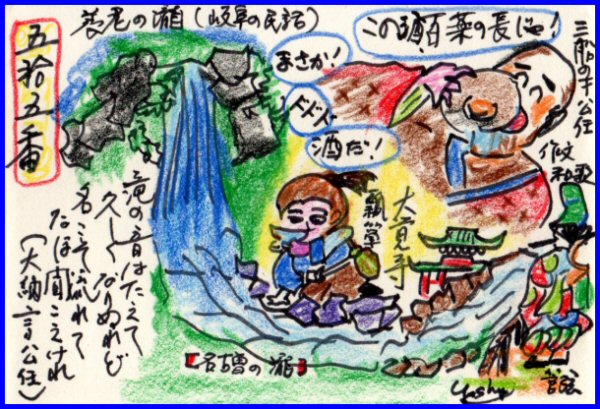 養老の瀧(岐阜の民話)
五拾五番
この酒百薬の長じゃ!
まさか!
ドドド
酒だ!
三船の才 公任
作文
和歌
瓢箪
大覚寺
滝の音はたえて
久しくなりぬれど
名こそ流れて
なほ聞こえけれ
(大納言公任)
【名古曽の瀧】